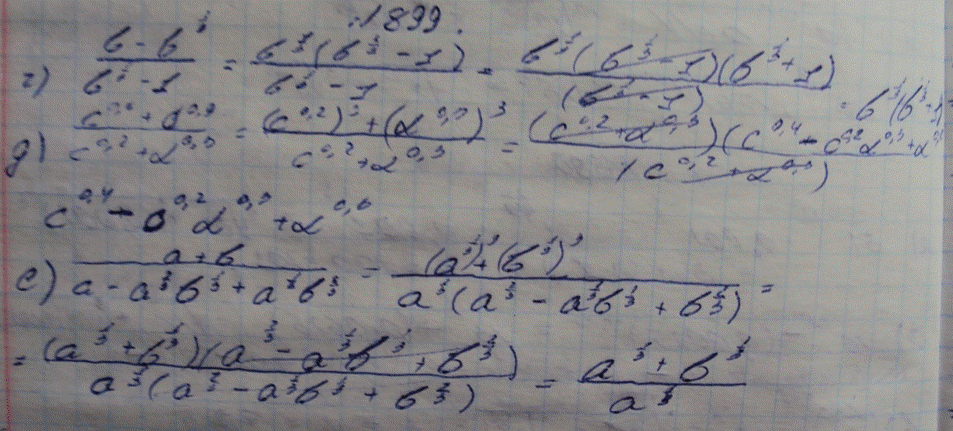 :1899.
г) (b - b^{1/3})/(b^{1/3} - 1) = b^{1/3}(b^{2/3} - 1)/(b^{1/3} - 1) = b^{1/3}(b^{1/3} - 1)(b^{1/3} + 1)/(b^{1/3} - 1) = b^{1/3}(b^{1/3} + 1)
д) (c^{0,6} + d^{0,9})/(c^{0,2} + d^{0,3}) = ((c^{0,2})^3 + (d^{0,3})^3)/(c^{0,2} + d^{0,3}) = (c^{0,2} + d^{0,3})(c^{0,4} - c^{0,2}d^{0,3} + d^{0,6})/(c^{0,2} + d^{0,3})
c^{0,4} - c^{0,2}d^{0,3} + d^{0,6}
е) (a + b)/(a - a^{2/3}b^{1/3} + a^{1/3}b^{2/3}) = ((a^{1/3})^3 + (b^{1/3})^3)/(a^{1/3}(a^{2/3} - a^{1/3}b^{1/3} + b^{2/3})) =
= (a^{1/3} + b^{1/3})(a^{2/3} - a^{1/3}b^{1/3} + b^{2/3})/(a^{1/3}(a^{2/3} - a^{1/3}b^{1/3} + b^{2/3})) = (a^{1/3} + b^{1/3})/a^{1/3}